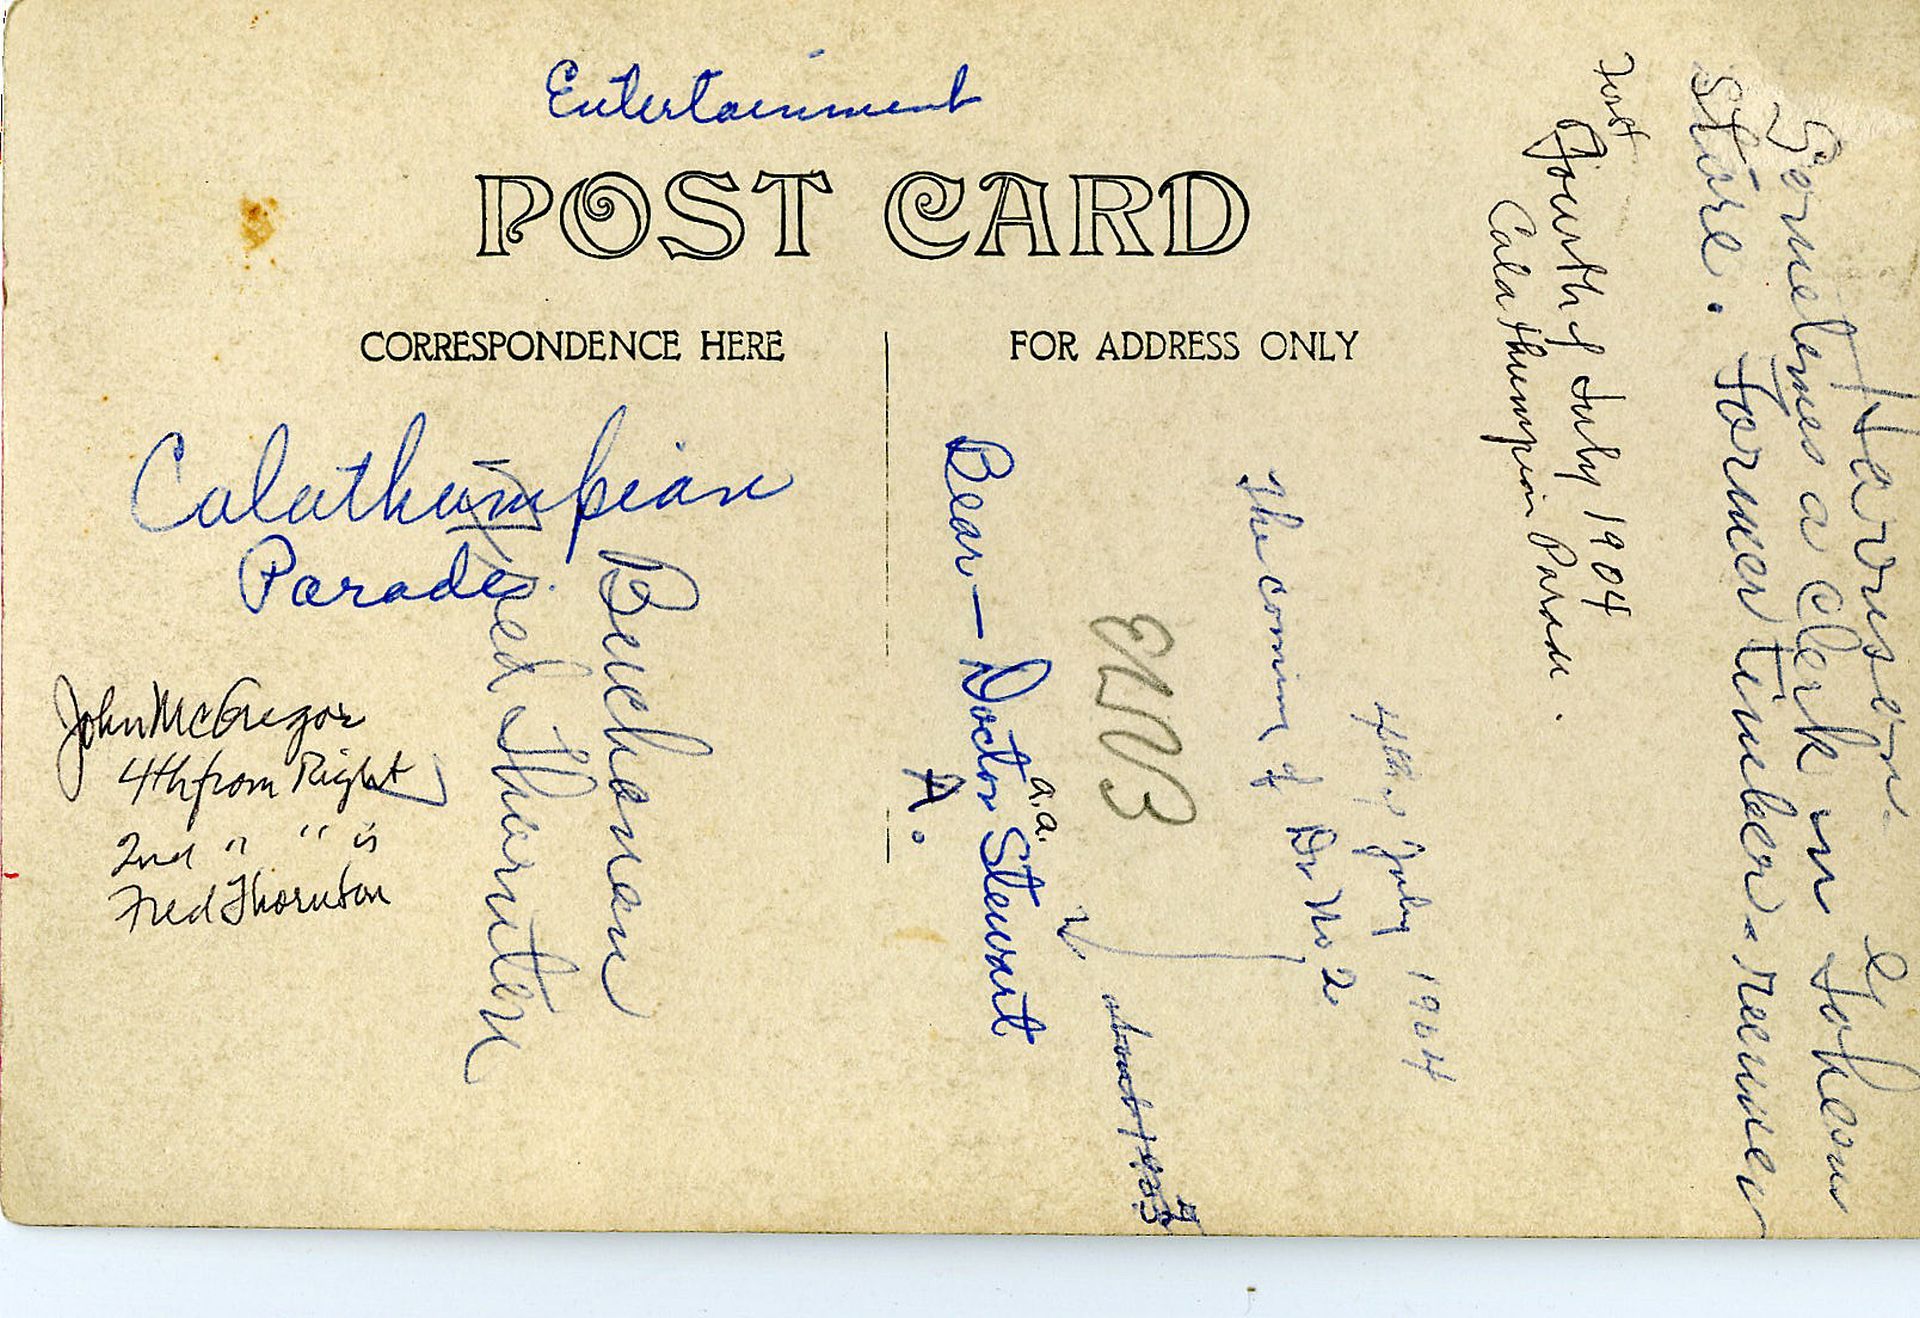 Entertainment
POST CARD
CORRESPONDENCE HERE
FOR ADDRESS ONLY
Calathumpian
Parade.
John McGregor
4th from Right
2nd " " is
Fred Thornton
Buchanan
Fred Thornton
Bear - Doctor Stewart
a.a.
A.
The coming of Dr No. 2
4th July 1904
Fourth of July 1904
Calathumpian Parade.
Harrison.
Sometimes a clerk in
store. Former timber